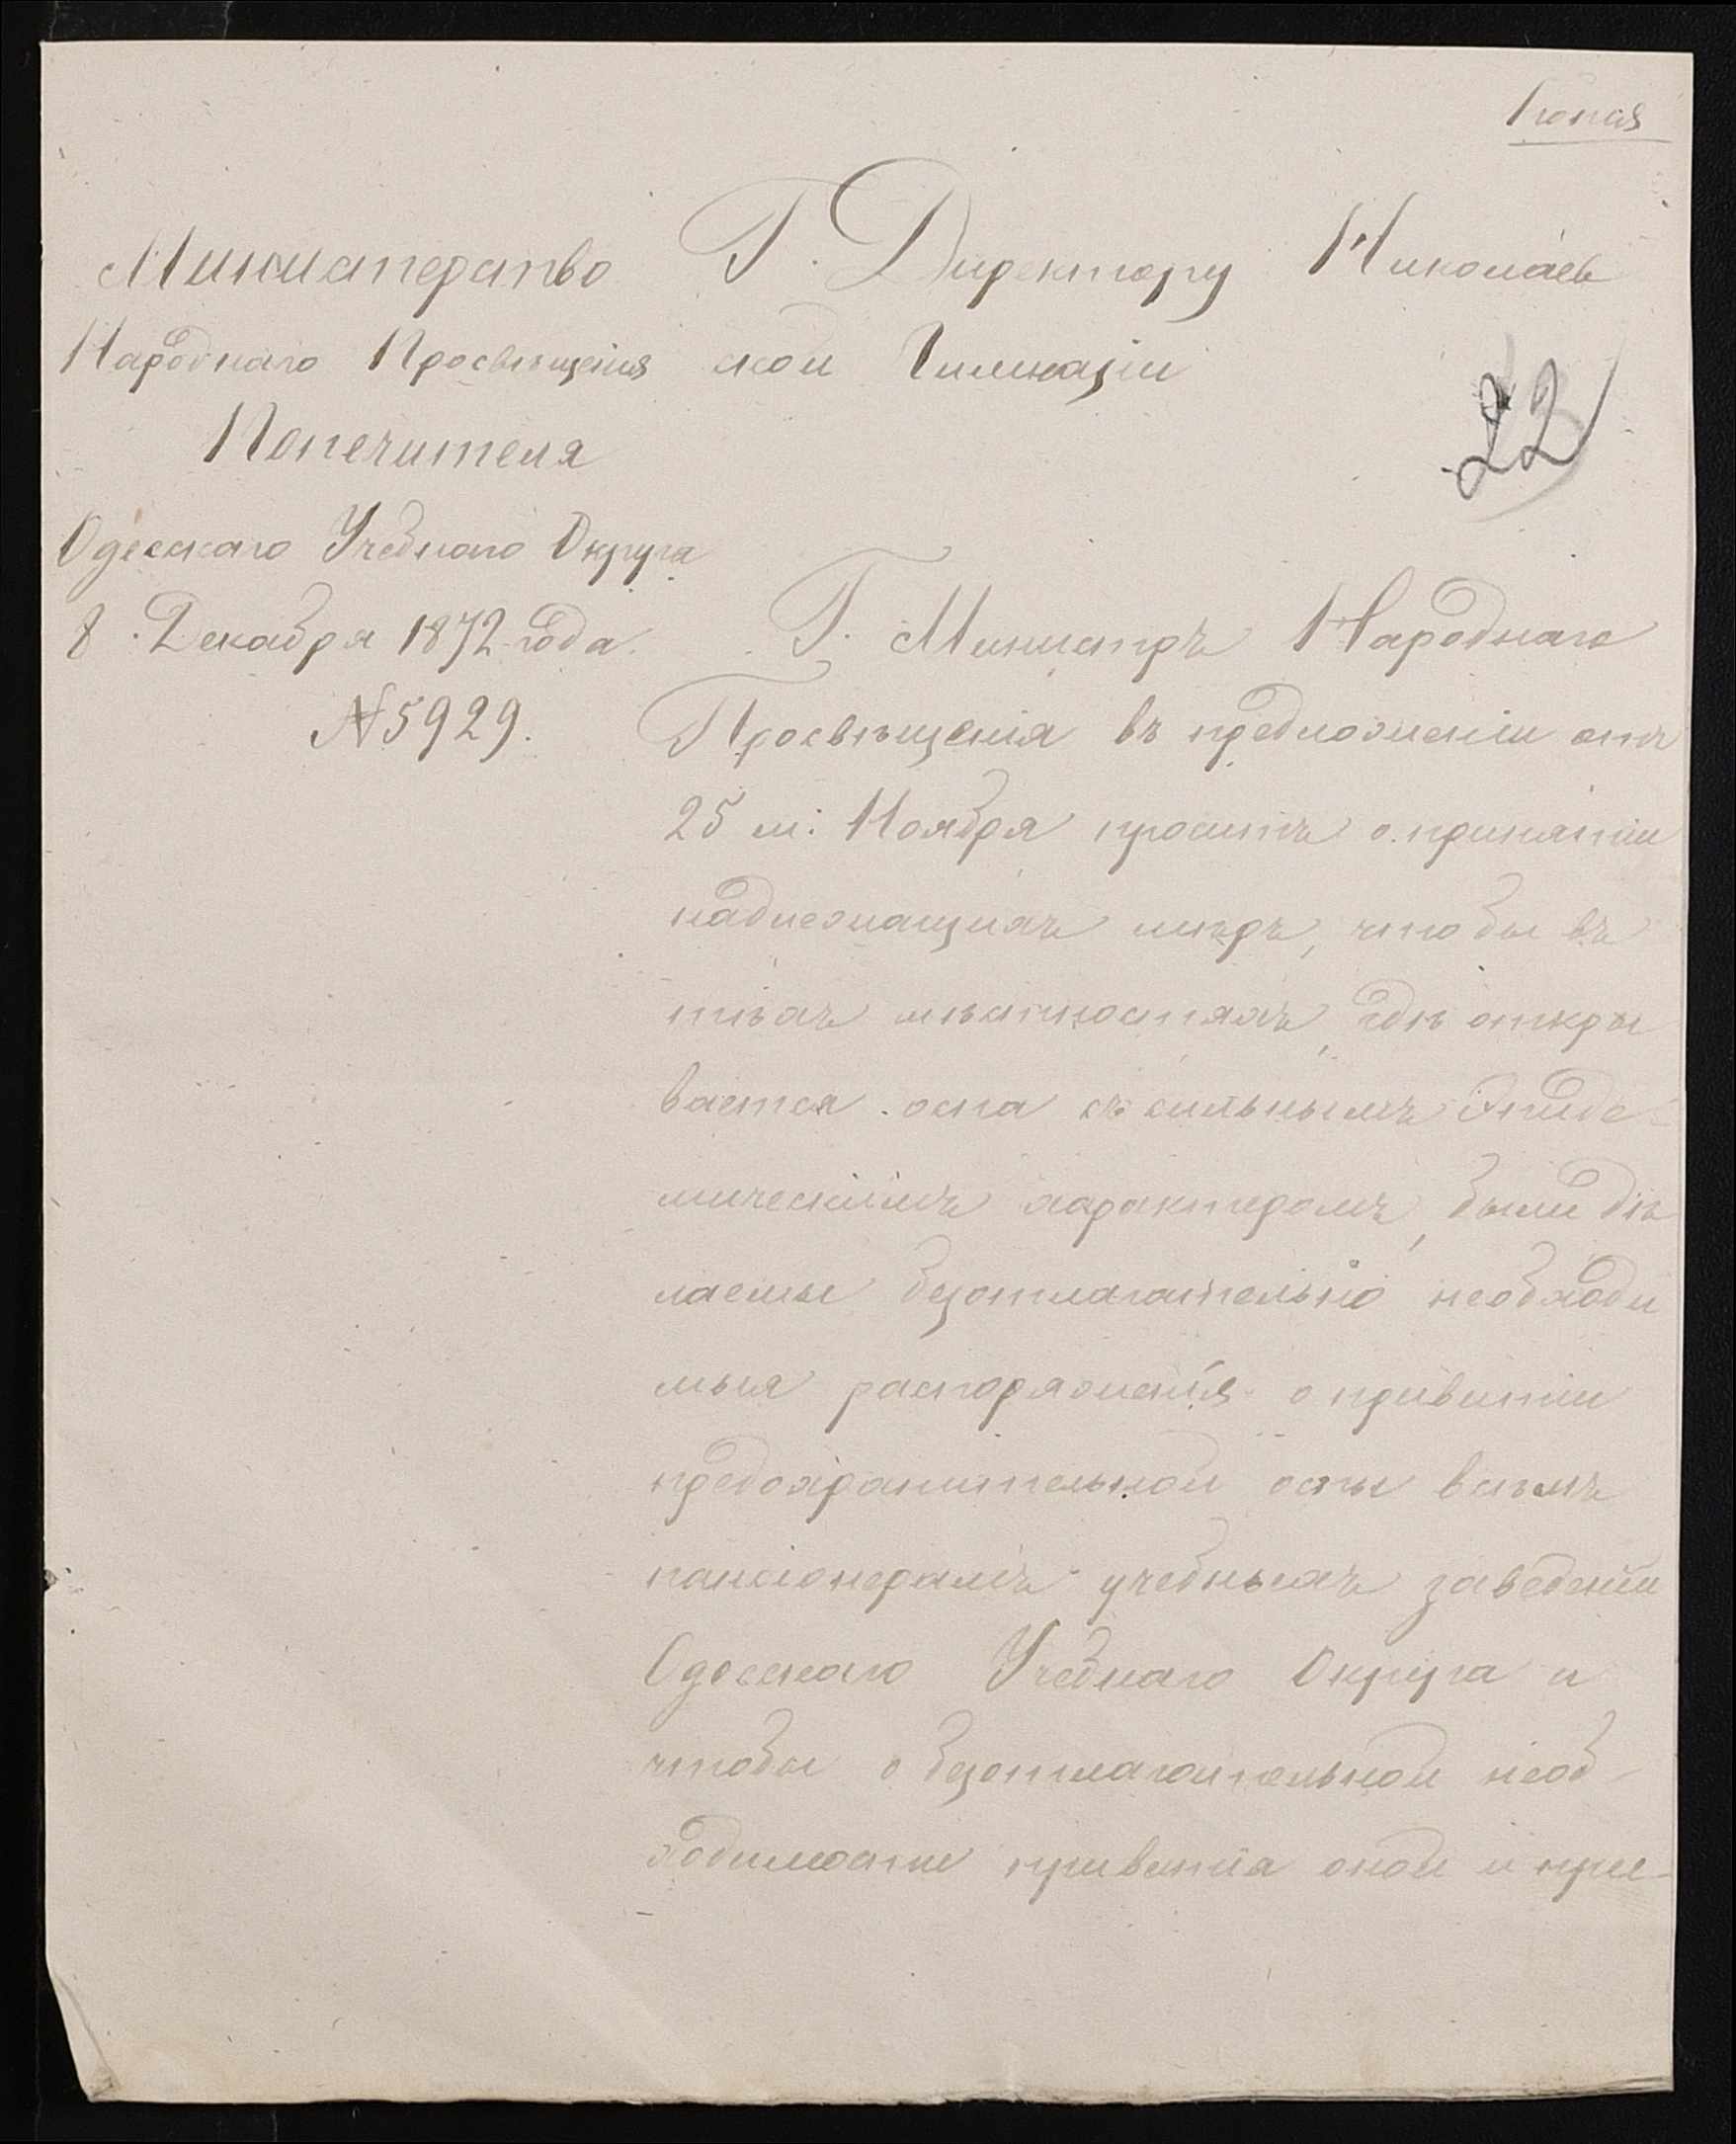 Копія
Министерство
Народнаго Просвѣщенія
Попечителя
Одесскаго Учебнаго Округа
8 Декабря 1872 года.
№ 5929.
Г. Директору Николаев
ской Гимназіи
22
Г. Министръ Народнаго
Просвѣщенія въ предложеніи отъ
25 м: Ноября проситъ о принятіи
надлежащихъ мѣръ, чтобы въ
тѣхъ мѣстностяхъ, гдѣ откры
вается оспа съ сильнымъ эпиде-
мическимъ характеромъ, были дѣ
лаемы безотлагательно необходи
мыя распоряженія о привитіи
предохранительной оспы всѣмъ
пансіонерамъ учебныхъ заведеній
Одесскаго Учебнаго Округа и
чтобы о безотлагательной необ-
ходимости привитія оной и при-